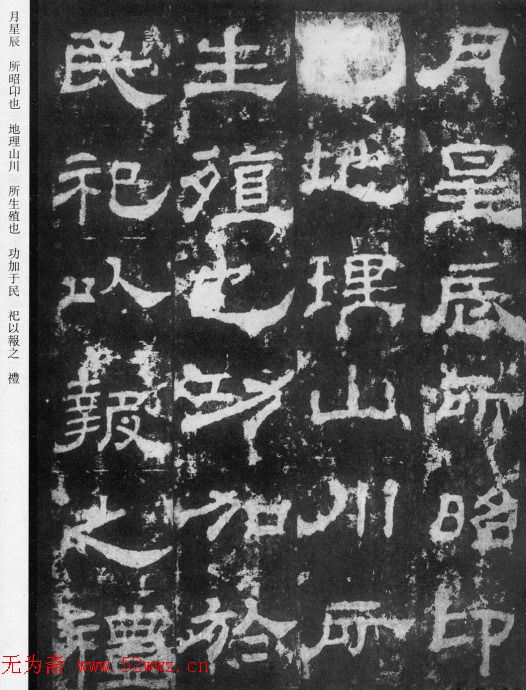 月星辰所昭印
地理山川所
生殖也功加於
民祀以報之禮
月星辰　所昭卬也　地理山川　所生殖也　功加于民　祀以報之　禮
无为斋 www.52wwz.cn